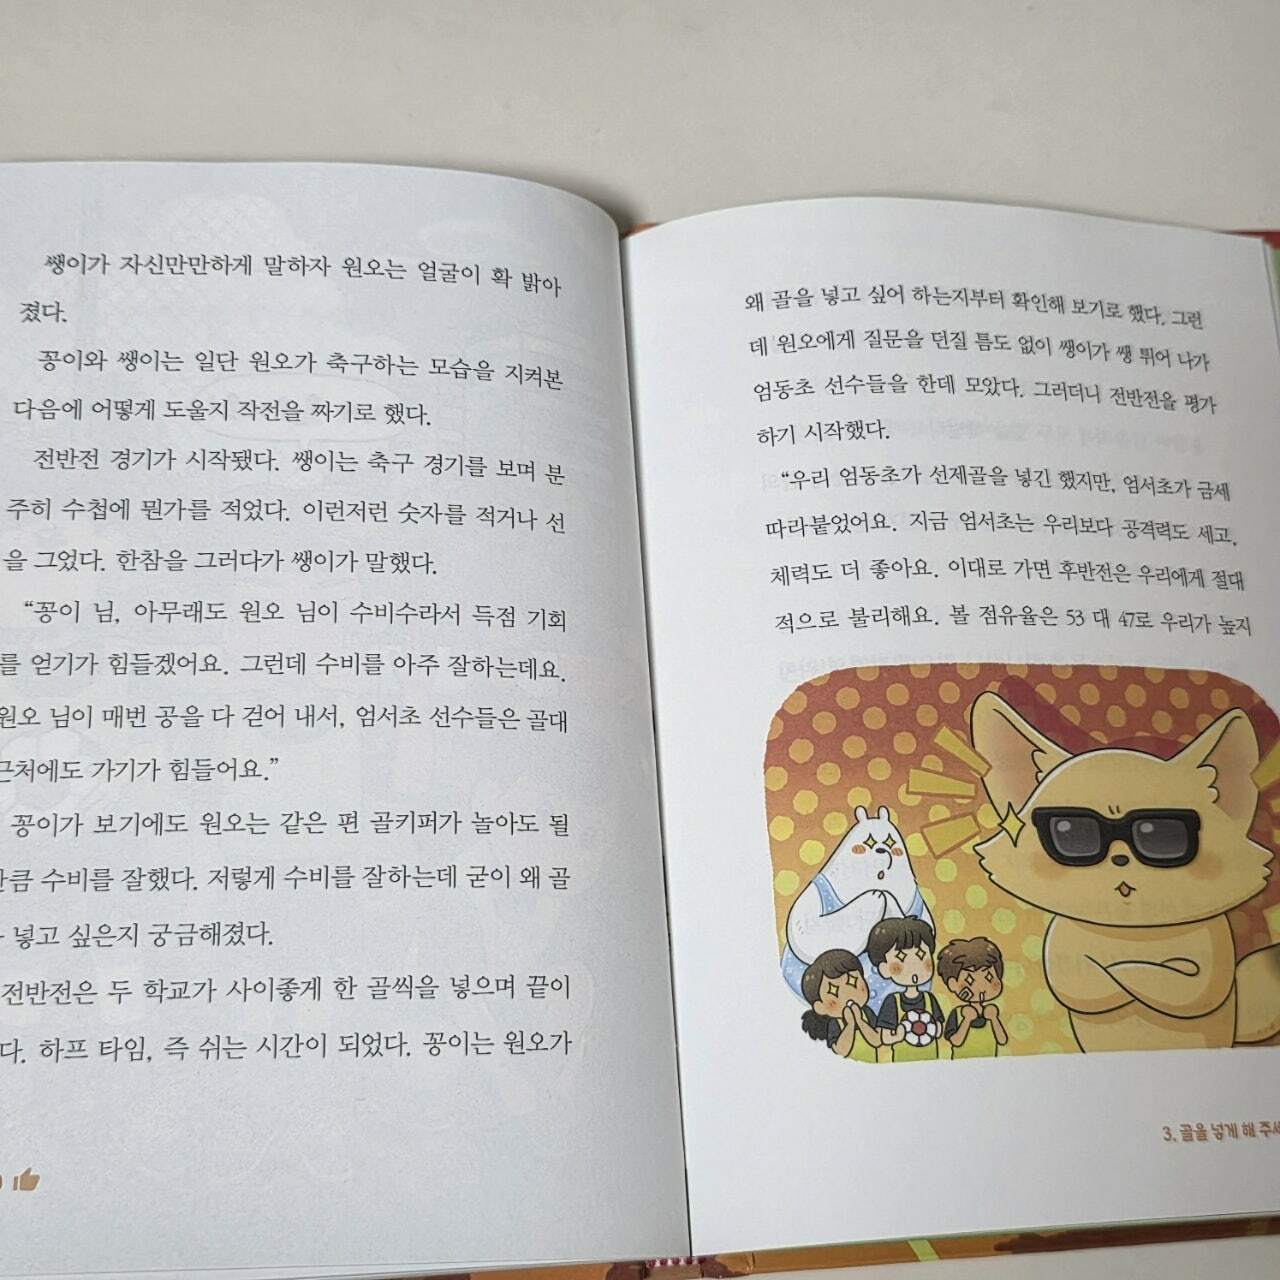 쌩이가 자신만만하게 말하자 원오는 얼굴이 확 밝아
졌다.
꽁이와 쌩이는 일단 원오가 축구하는 모습을 지켜본
다음에 어떻게 도울지 작전을 짜기로 했다.
전반전 경기가 시작됐다. 쌩이는 축구 경기를 보며 분
주히 수첩에 뭔가를 적었다. 이런저런 숫자를 적거나 선
을 그었다. 한참을 그러다가 쌩이가 말했다.
“꽁이 님, 아무래도 원오 님이 수비수라서 득점 기회
를 얻기가 힘들겠어요. 그런데 수비를 아주 잘하는데요.
원오 님이 매번 공을 다 걷어 내서, 엄서초 선수들은 골대
근처에도 가기가 힘들어요.”
꽁이가 보기에도 원오는 같은 편 골키퍼가 놀아도 될
만큼 수비를 잘했다. 저렇게 수비를 잘하는데 굳이 왜 골
넣고 싶은지 궁금해졌다.
전반전은 두 학교가 사이좋게 한 골씩을 넣으며 끝이
다. 하프 타임, 즉 쉬는 시간이 되었다. 꽁이는 원오가
왜 골을 넣고 싶어 하는지부터 확인해 보기로 했다. 그런
데 원오에게 질문을 던질 틈도 없이 쌩이가 쌩 튀어 나가
엄동초 선수들을 한데 모았다. 그러더니 전반전을 평가
하기 시작했다.
“우리 엄동초가 선제골을 넣긴 했지만, 엄서초가 금세
따라붙었어요. 지금 엄서초는 우리보다 공격력도 세고,
체력도 더 좋아요. 이대로 가면 후반전은 우리에게 절대
적으로 불리해요. 볼 점유율은 53 대 47로 우리가 높지
3. 골을 넣게 해 주세